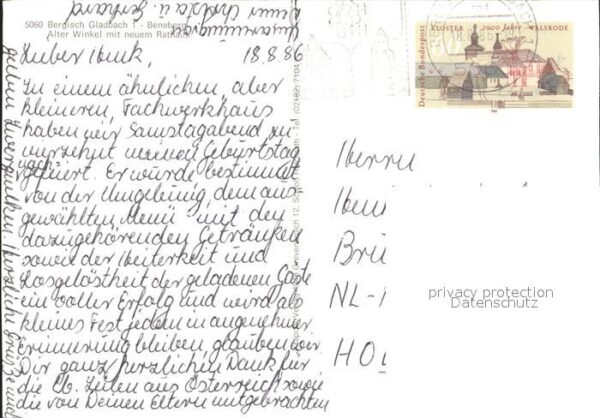 5060 Bergisch Gladbach 1 - Bensberg
Alter Winkel mit neuem Rathaus
Lieber Henk, 18.8.86
Zu einem ähnlichen, aber
kleineren, Fachwerkhaus
haben wir Samstagabend zu
vierzehnt meinen Geburtstag
nachgefeiert. Er wurde bestimmt
von der Umgebung, dem aus-
gewählten Menü mit den
dazugehörenden Getränken
sowie der Heiterkeit und
Losgelöstheit der geladenen Gäste
ein voller Erfolg und wird als
kleines Fest jedem in angenehmer
Erinnerung bleiben, glauben wir.
Dir ganz herzlichen Dank für
die lb. Zeilen aus Österreich sowie
die von Deinen Eltern mitgebrachten
gelben Herzliche Grüße und
u. Gerhard
KLOSTER 1000 Jahre WALSRODE
Deutsche Bundespost
Herrn
NL-
privacy protection
Datenschutz